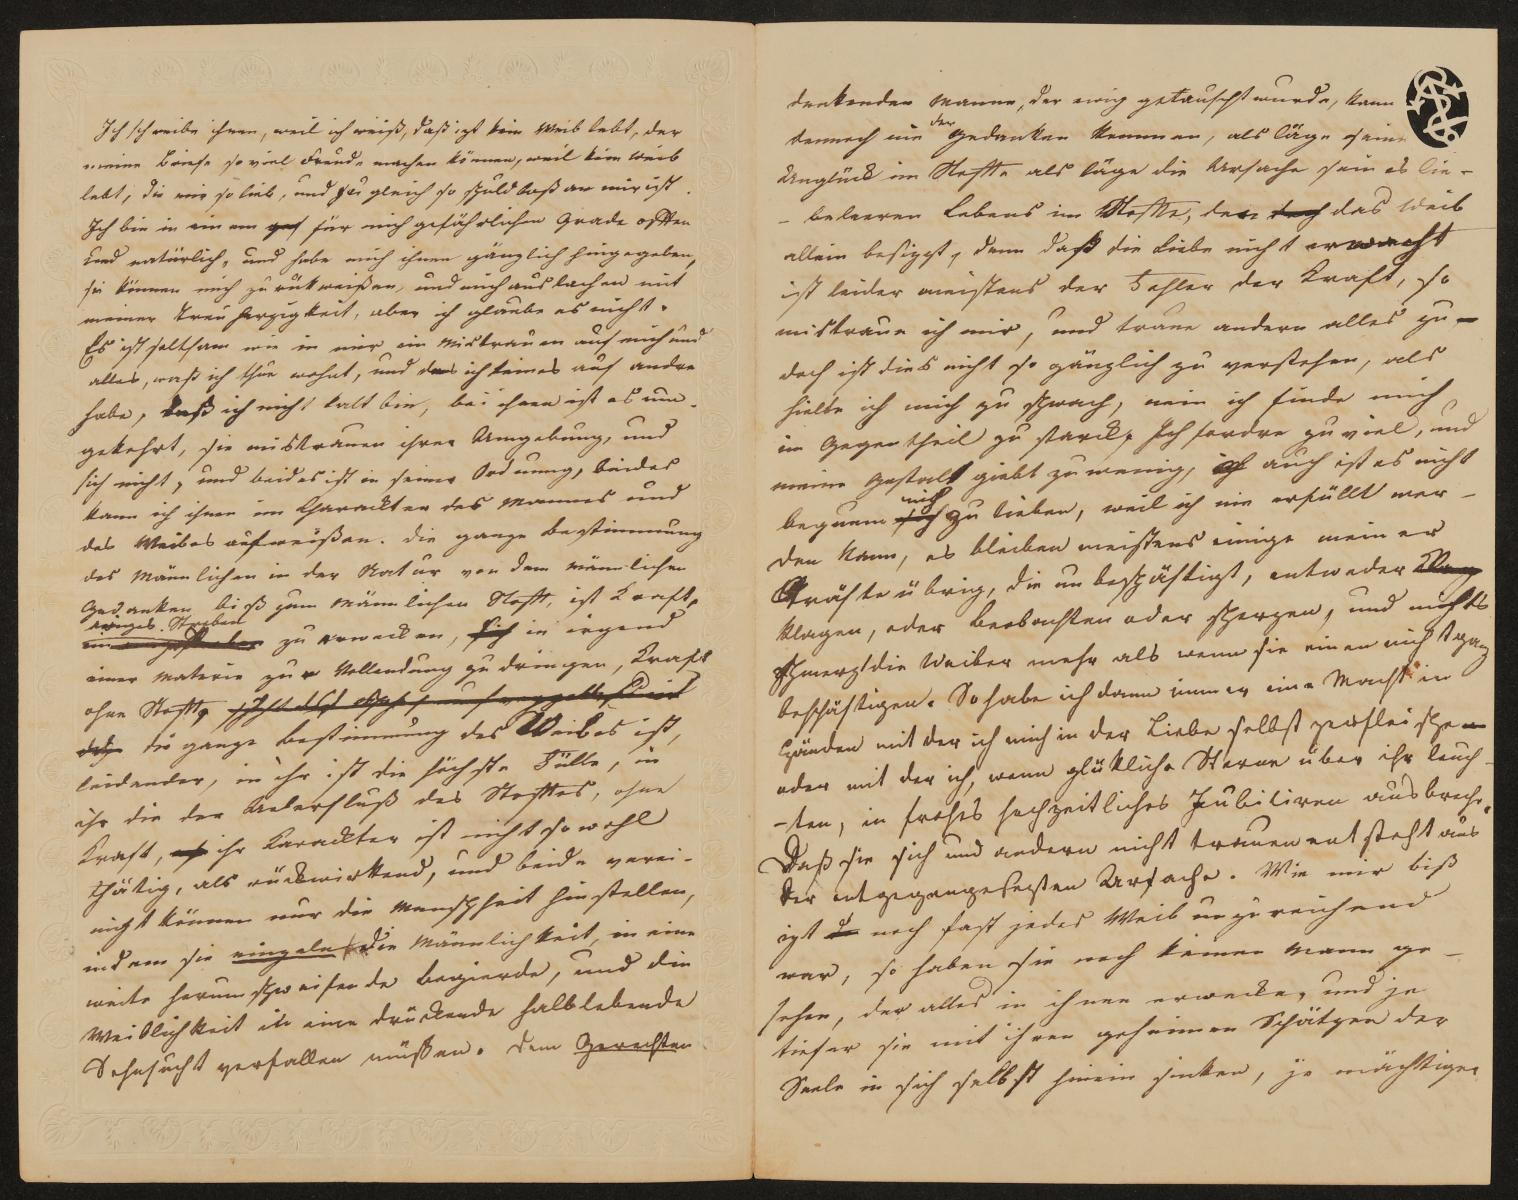 Ich schreibe ihnen, weil ich weiß, daß izt kein Weib lebt, der
meine Briefe so viel Freude machen können, weil kein Weib
lebt, die mir so lieb, und zu gleich so schuldlos an mir ist.
Ich bin in einem für mich gefährlichen Grade offen
und natürlich, und habe mich ihnen gänzlich hingegeben,
sie können mich zurükweißen, und mich auslachen mit
meiner Treuherzigkeit, aber ich glaube es nicht.
Es ist seltsam wie in mir ein Mistrauen auf mich und
alles, waß ich thue wohnt, und das ich keines auf andre
habe, daß ich nicht kalt bin, bei ihnen ist es um-
gekehrt, sie mistrauen ihrer Umgebung, und
sich nicht, und beides ist in seiner Ordnung, beides
kann ich ihnen im Charackter des Mannes und
des Weibes aufweißen. die ganze Bestimmung
des Männlichen in der Natur von dem männlichen
Gedanken biß zum männlichen Stoff, ist Kraft,
ewiges Streben
zu erwecken, sich in irgend
einer Materie zur Vollendung zu dringen, Kraft
ohne Stoff,
die ganze Bestimmung des Weibes ist,
leidender, in ihr ist die höchste Fülle, in
ihr die der Ueberfluß des Stoffes, ohne
Kraft, ihr Karackter ist nicht sowohl
thätig, als rückwirkend, und beide verei-
nigt können nur die Menschheit hinstellen,
indem sie einzeln die Männlichkeit, in eine
weite herumschweifende Begierde, und die
Weiblichkeit in eine drückende halblebende
Sehnsucht verfallen müssen. dem Gerechten
denkenden Manne, der ewig getäuscht wurde, kann
der
dennoch nie Gedanken kommen, als läge seine
Unglück im Stoffe als läge die Ursache sein es lie-
-beleeren Lebens im Stoffe, den doch das Weib
allein besizzt, denn daß die Liebe nicht erwacht
ist leider meistens der Fehler der Kraft, so
mistraue ich mir, und traue andern alles zu –
doch ist dies nicht so gänzlich zu verstehen, als
hielte ich mich zu schwach, nein ich finde mich
im Gegentheil zu starck, Ich fordre zu viel, und
meine Gestalt giebt zu wenig, auch ist es nicht
mich
bequem zu lieben, weil ich nie erfüllt wer-
den kann, es bleiben meistens einige meiner
Kräfte übrig, die unbeschäftigt, entweder
klagen, oder beobachten oder scherzen, und nichts
schmerzt die Weiber mehr als wenn sie einen nicht ganz
beschäftigen. So habe ich dann immer eine Macht in
Händen mit der ich mich in der Liebe selbst zerfleische
oder mit der ich, wenn glükliche Sterne über ihr leuch-
-ten, in frohes hochzeitliches Jubiliren ausbreche.
Daß sie sich und andern nicht trauen entsteht aus
der entgegengesezten Ursache. Wie mir biß
izt noch fast jedes Weib unzureichend
war, so haben sie noch keinen Mann ge-
sehen, der alles in ihnen erwecke, und je
tiefer sie mit ihren geheimen Schätzen der
Seele in sich selbst hinein sinken, je mächtiger